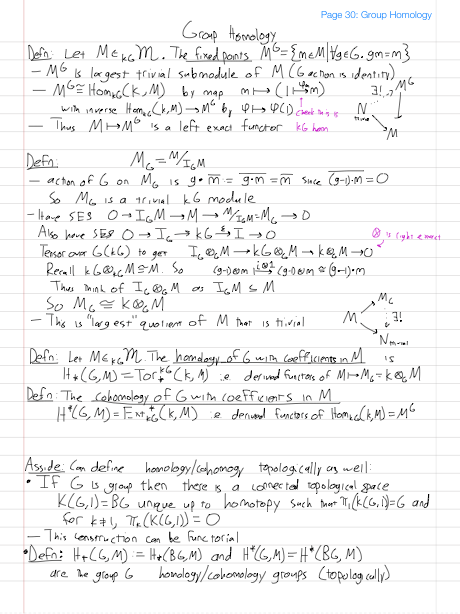 Page 30: Group Homology
Group Homology
Defn: Let M ∈ kG M. The fixed points M^G = {m∈M | ∀g∈G. gm=m}
— M^G is largest trivial submodule of M (G action is identity)
— M^G ≅ Hom_kG(k,M) by map m ↦ (1 ↦ m)
φm
∃!
M^G
with inverse Hom_kG(k,M) → M^G by φ ↦ φ(1)
check this is
kG hom
N
trivial
M
— Thus M ↦ M^G is a left exact functor
Defn: M_G = M/I_G M
— action of G on M_G is g·m̄ = \overline{g·m} = m̄ since \overline{(g-1)·m} = 0
So M_G is a trivial kG module
— Have SES 0 → I_G M → M → M/I_G M = M_G → 0
Also have SES 0 → I_G → kG →ε k → 0
⊗ is right exact
Tensor over G (kG) to get I_G ⊗_G M → kG ⊗_G M → k ⊗_G M → 0
Recall kG ⊗_kG M ≅ M. So (g-1)⊗m ↦^{i⊗1} (g-1)⊗m ≅ (g-1)·m
Thus think of I_G ⊗_G M as I_G M ≤ M
So M_G ≅ k ⊗_G M
— This is "largest" quotient of M that is trivial
M
M_G
∃!
N trivial
Defn: Let M ∈ kG M. The homology of G with coefficients in M is
H_*(G,M) = Tor_*^kG(k,M) i.e. derived functors of M ↦ M_G = k ⊗_G M
Defn: The cohomology of G with coefficients in M
H^*(G,M) = Ext^*_kG(k,M) i.e. derived functors of Hom_kG(k,M) = M^G
Asside: Can define homology/cohomogy topologically as well:
• If G is group then there is a connected topological space
K(G,1) = BG unique up to homotopy such that π_1(K(G,1)) = G and
for k≠1, π_k(K(G,1)) = 0
— This construction can be functorial
• Defn: H_*(G,M) := H_*(BG,M) and H^*(G,M) = H^*(BG,M)
are the group G homology/cohomology groups (topologically)